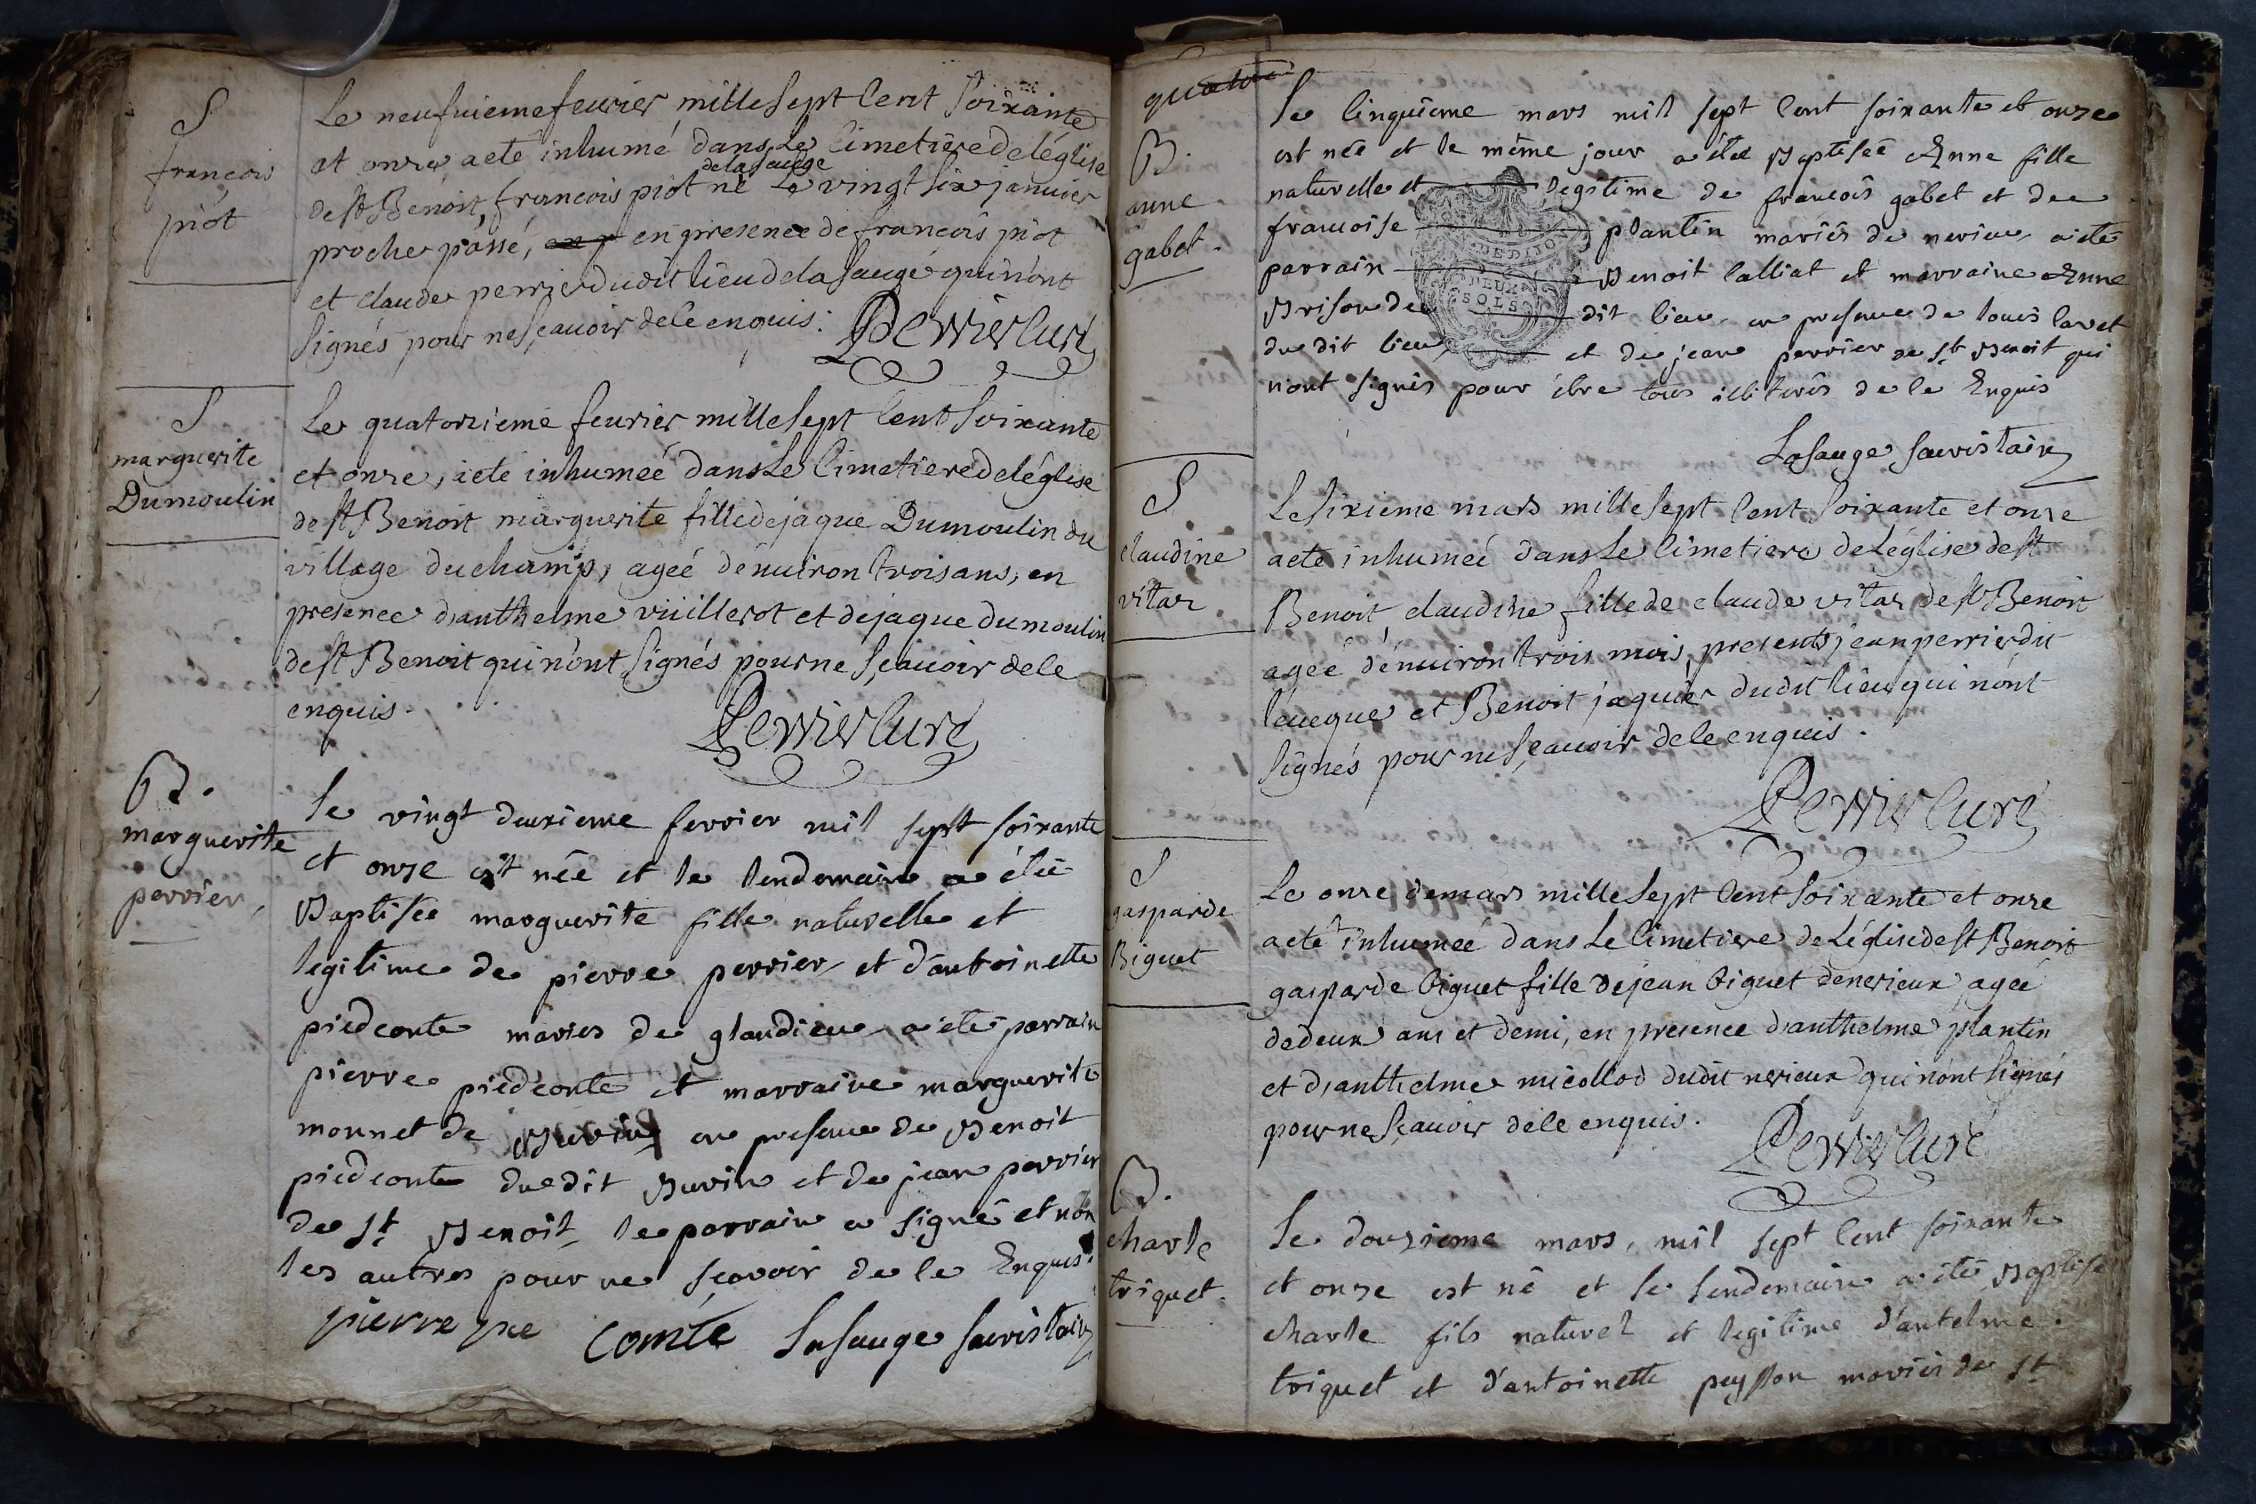 S
francois
piot
Le neufuieme feurier mille sept Cent Soixante
et onze a eté inhumé dans Le Cimetiere de léglise
de la sauge
de st Benoit, francois piot né Le vingt six januier
proche passé, en presence de francois piot
et claude perrier dudit lieu de la sauge qui n'ont
signés pour ne sçauoir de ce enquis.
Perrier Curé
S
marguerite
Dumoulin
Le quatorzieme feurier mille sept Cent Soixante
et onze, a eté inhumeé dans Le Cimetiere de léglise
de st Benoit marguerite fille de jaque Dumoulin du
village du champ, ageé d'enuiron trois ans, en
presence d'anthelme vüillerot et de jaque dumoulin
de st Benoit qui n'ont signés pour ne sçauoir de ce
enquis.
Perrier Curé
B.
marguerite
perrier,
Le vingt deuxieme ferrier mil sept soixante
et onze est née et le lendemain a été
Baptisée marguerite fille naturelle et
legitime de pierre perrier et d'antoinette
piedconte mariés de glandieu a été parrain
pierre piedconte et marraine marguerite
monnet de Buvin en presence de Benoit
piedconte du dit Buvin et de jean perrier
de st Benoit, le parrain a signé et non
les autres pour ne sçavoir de ce Enquis.
pierre pie Comte Lasauge sacristain
quatorze
B.
anne
gabet.
Le Cinquieme mars mil sept Cent soixante et onze
est née et le même jour a été Baptisée Anne fille
naturelle et legitime de francois gabet et de
francoise plantin mariés de nerieu a été
parrain Benoit Calliat et marraine Anne
Brison de dit lieu en presence de Louis Cavet
du dit lieu et de jean perrier de st Benoit qui
n'ont signés pour être tous illiterés de ce Enquis
DEUX
SOLS
Lasauge sacristain
S
claudine
vitar
Le sixieme mars mille sept Cent Soixante et onze
a eté inhumeé dans Le Cimetiere de Léglise de st
Benoit, claudine fille de claude vitar de st Benoit
ageé d'enuiron trois mois, presents jean perrier dit
leueque et Benoit jaquier dudit lieu qui n'ont
signés pour ne sçauoir de ce enquis.
Perrier Curé
S
gasparde
Biguet
Le onze de mars mille sept Cent Soixante et onze
a eté inhumeé dans Le Cimetiere de Léglise de st Benoit
gasparde biguet fille de jean biguet de nerieux, ageé
de deux ans et demi, en presence d'anthelme plantin
et d'anthelme micollod dudit nerieux qui n'ont signés
pour ne sçauoir de ce enquis.
Perrier Curé
B.
charle
triquet.
Le douzieme mars, mil sept Cent soixante
et onze est né et le lendemain a été Baptisé
charle fils naturel et legitime d'antelme
triquet et d'antoinette peysson mariés de st